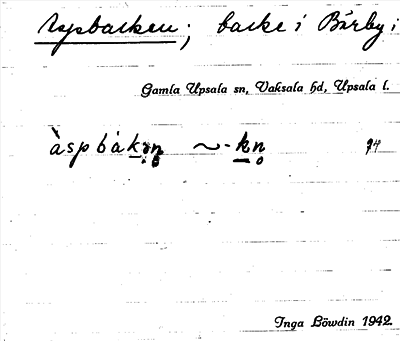 Aspbacken; backe i Bärby i
Gamla Upsala sn, Vaksala hd, Upsala l.
àspbàkən̥ ~-kn̥ 74
Inga Löwdin 1942.